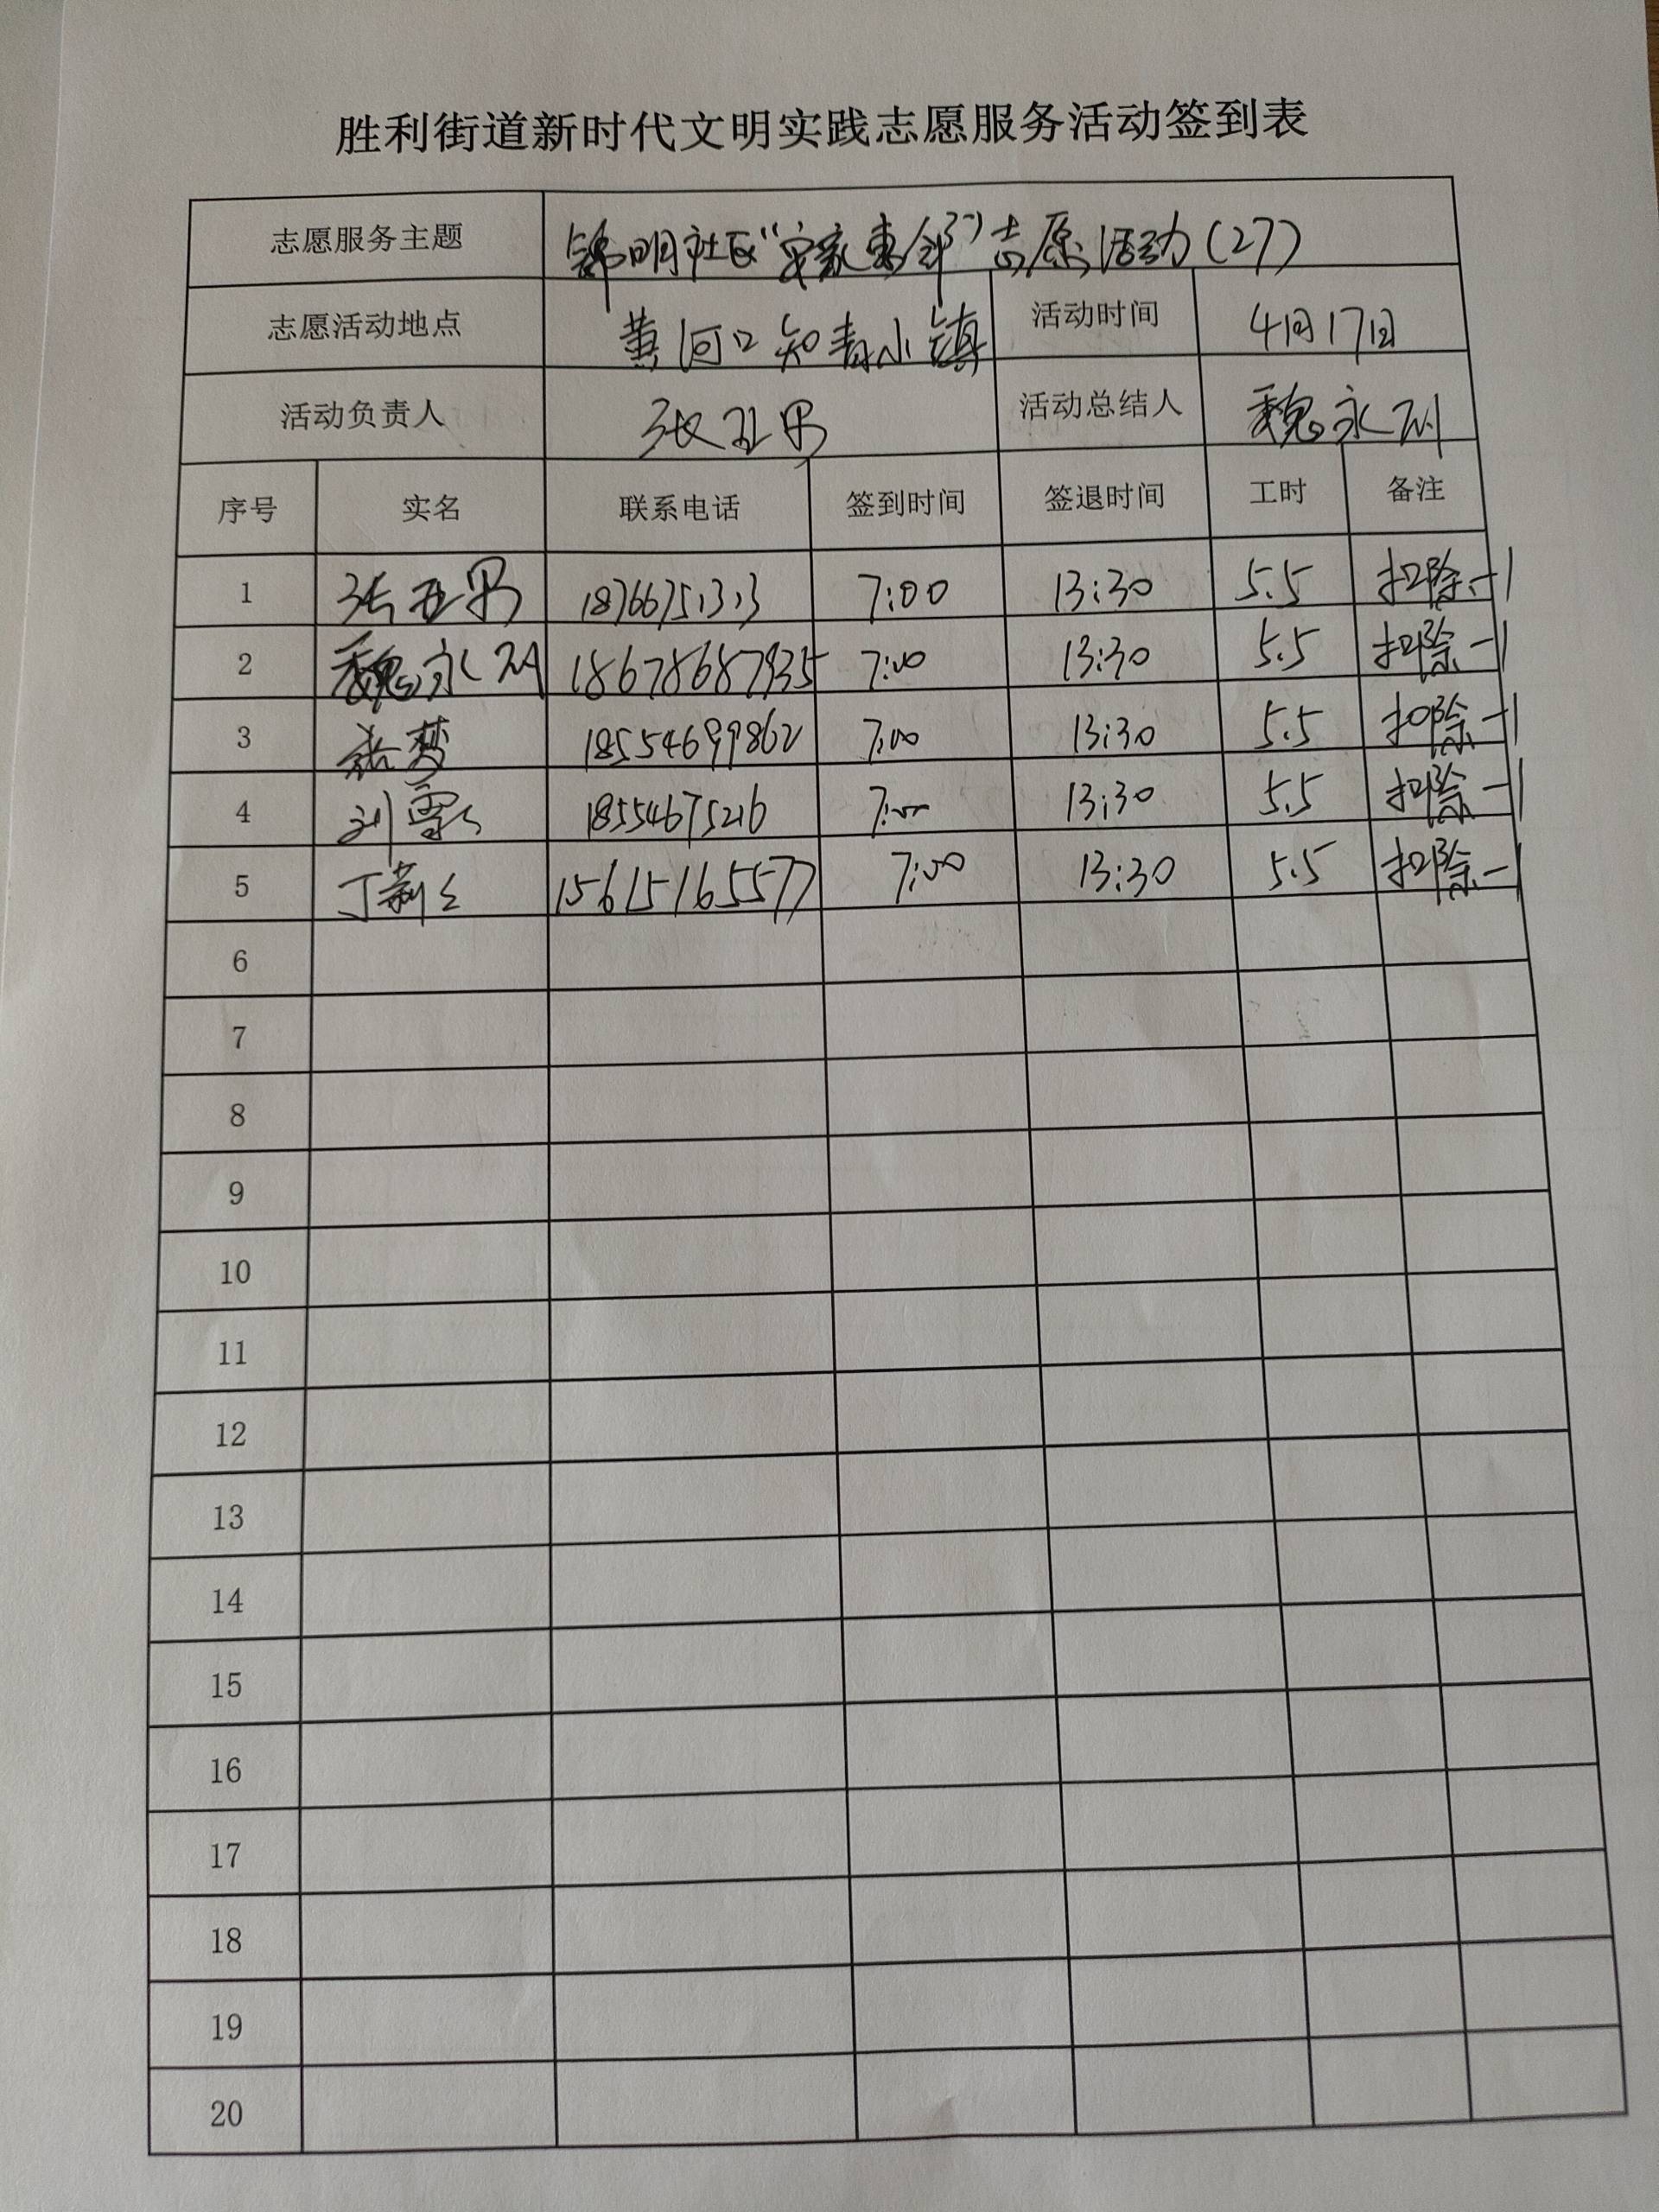 胜利街道新时代文明实践志愿服务活动签到表
志愿服务主题 锦明社区“安家惠邻”志愿活动(27)
志愿活动地点 黄河口知青小镇 活动时间 4月17日
活动负责人 张亚男 活动总结人 魏永利
序号 实名 联系电话 签到时间 签退时间 工时 备注
1 张亚男 18766751313 7:00 13:30 5.5 扣除-1
2 魏永利 18678687935 7:00 13:30 5.5 扣除-1
3 张梦 18554699862 7:00 13:30 5.5 扣除-1
4 刘 18554675216 7:00 13:30 5.5 扣除-1
5 丁莉 15615165577 7:00 13:30 5.5 扣除-1
6
7
8
9
10
11
12
13
14
15
16
17
18
19
20